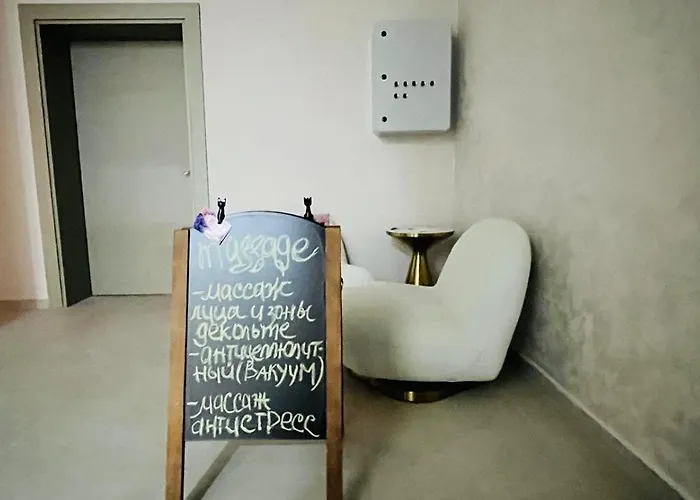 massage
-массаж
лица и зоны
декольте
-антицеллюлит-
ный (ВАКУУМ)
-массаж
антистресс